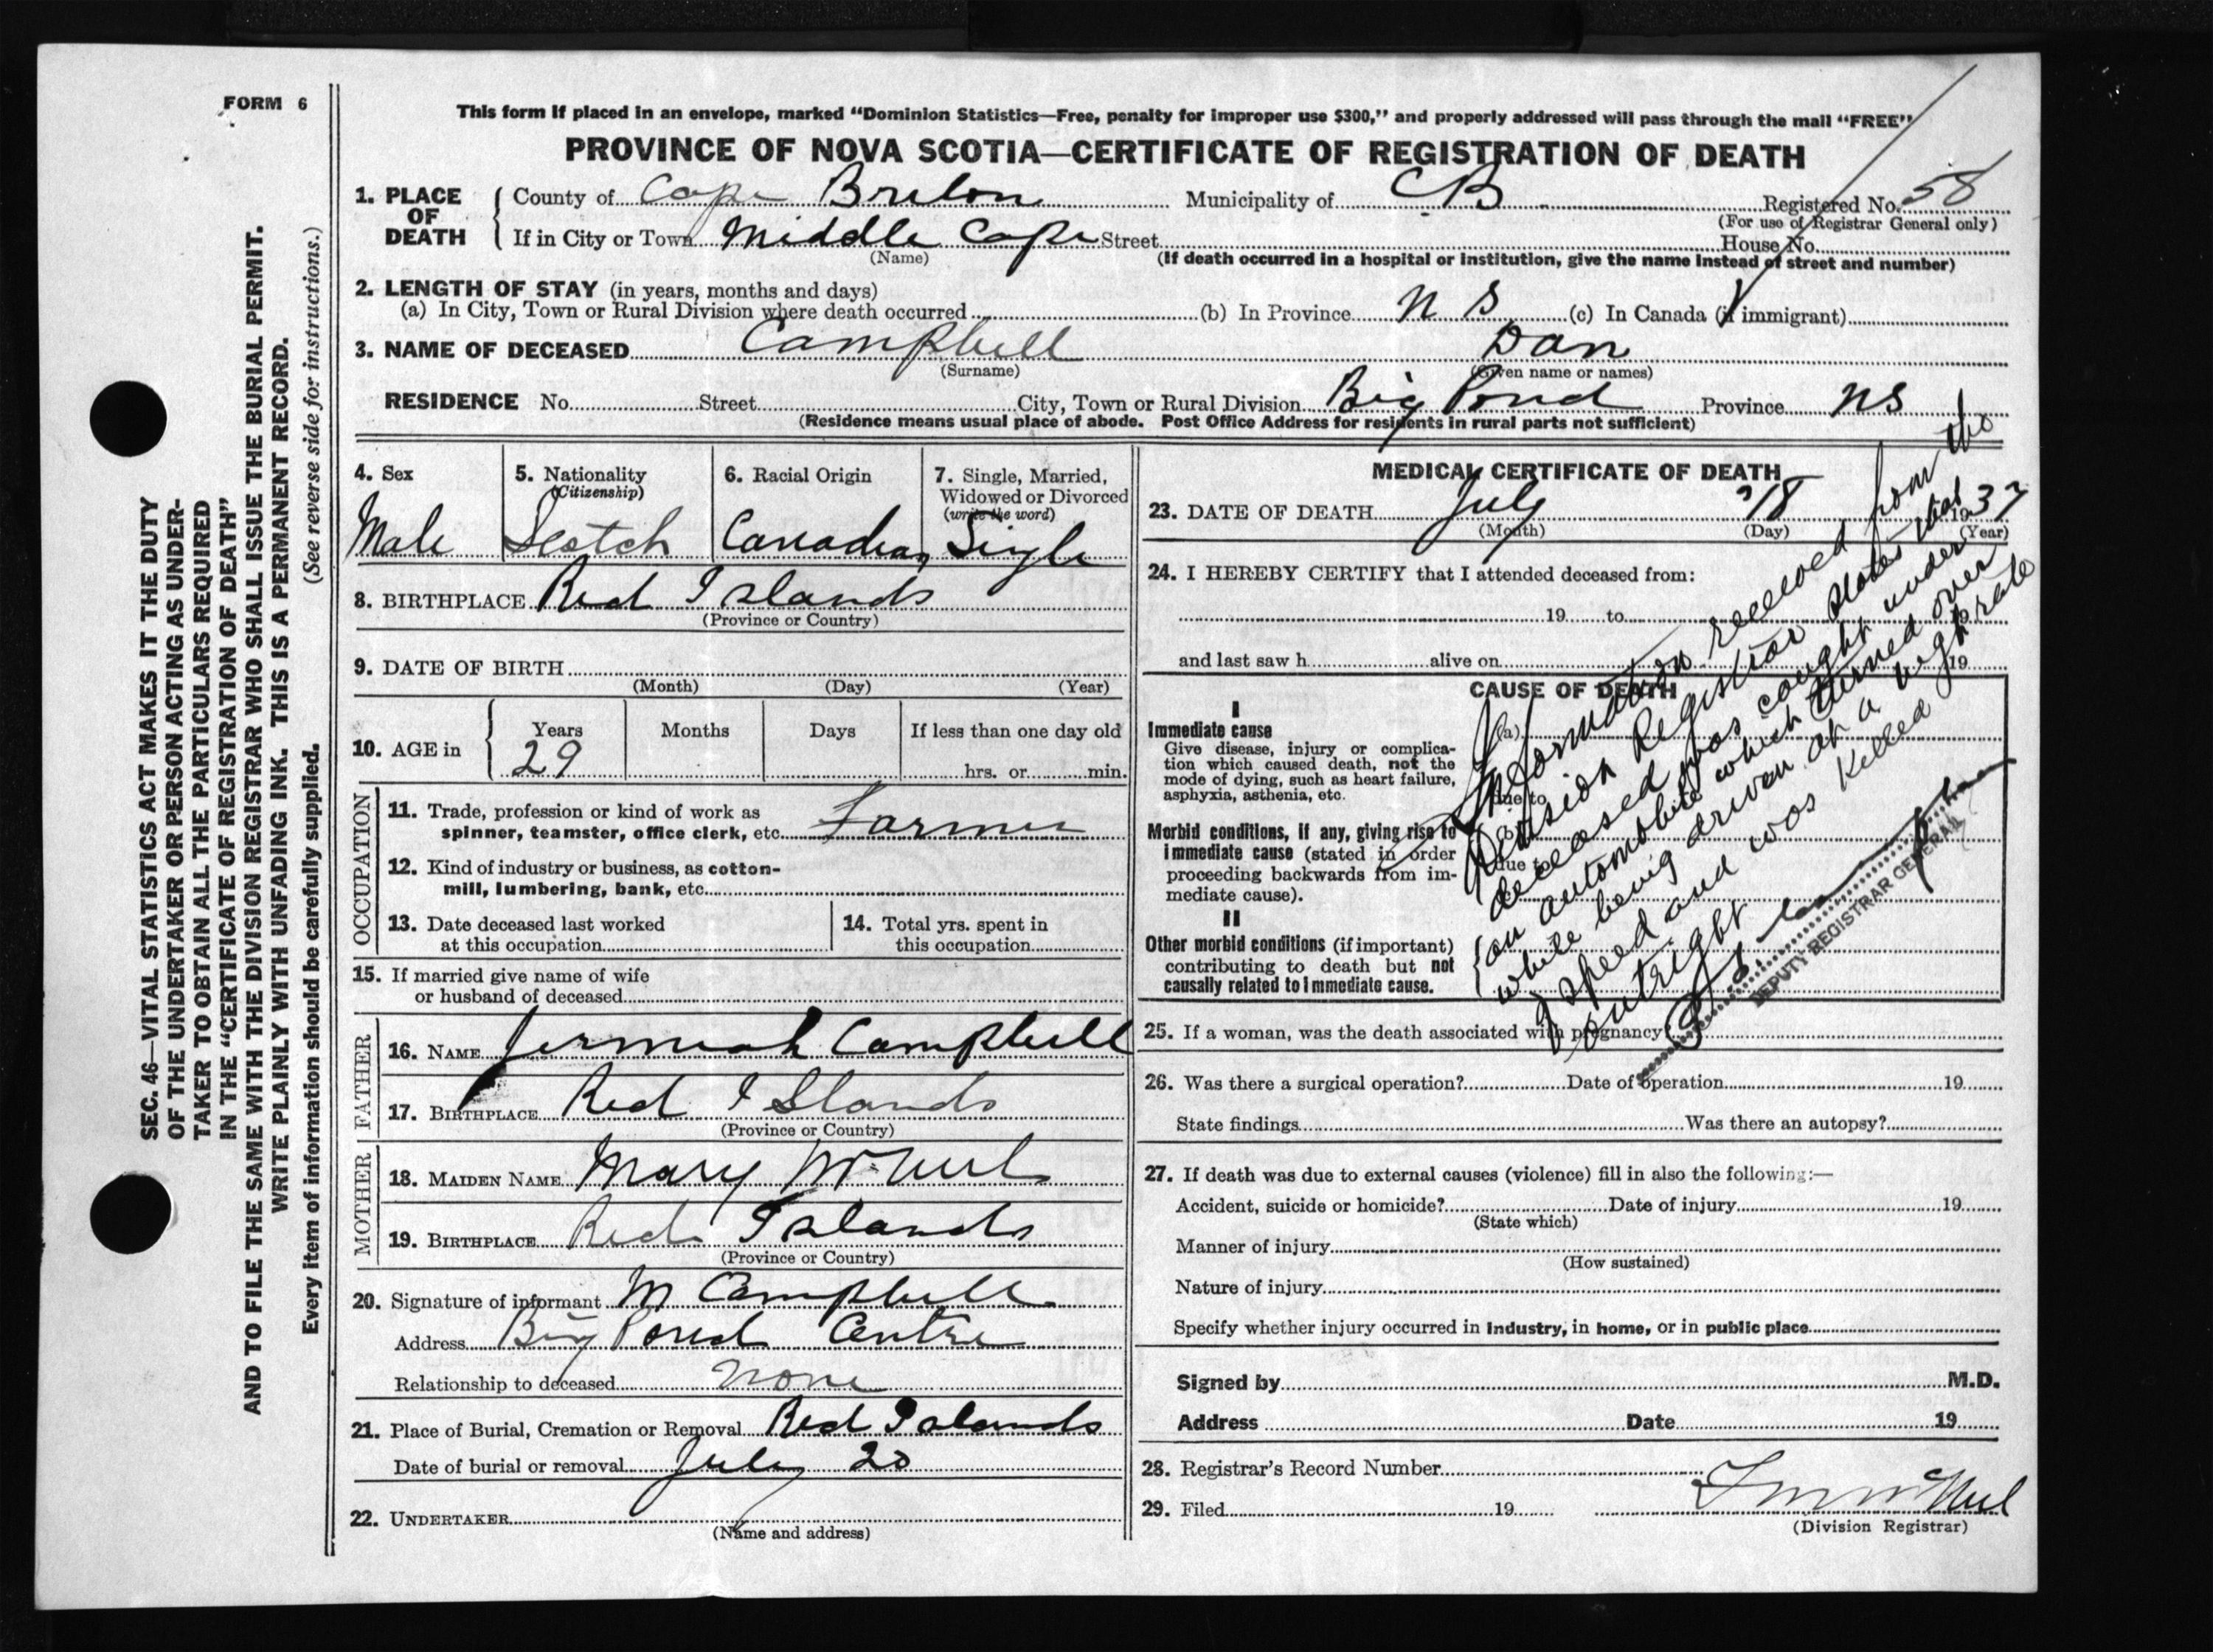 FORM 6
This form if placed in an envelope, marked "Dominion Statistics—Free, penalty for improper use $300," and properly addressed will pass through the mail "FREE"
PROVINCE OF NOVA SCOTIA—CERTIFICATE OF REGISTRATION OF DEATH
1. PLACE OF DEATH
County of Cape Breton Municipality of CB Registered No. 58
(For use of Registrar General only)
If in City or Town Middle Cape Street House No.
(Name) (If death occurred in a hospital or institution, give the name instead of street and number)
2. LENGTH OF STAY (in years, months and days)
(a) In City, Town or Rural Division where death occurred (b) In Province N S (c) In Canada (if immigrant)
3. NAME OF DECEASED Campbell Dan
(Surname) (Given name or names)
RESIDENCE No. Street City, Town or Rural Division Big Pond Province NS
(Residence means usual place of abode. Post Office Address for residents in rural parts not sufficient)
4. Sex
Male
5. Nationality
(Citizenship)
Scotch
6. Racial Origin
Canadian
7. Single, Married,
Widowed or Divorced
(write the word)
Single
8. BIRTHPLACE Red Islands
(Province or Country)
9. DATE OF BIRTH
(Month) (Day) (Year)
10. AGE in
Years Months Days If less than one day old
29 hrs. or min.
OCCUPATION
11. Trade, profession or kind of work as
spinner, teamster, office clerk, etc. Farmer
12. Kind of industry or business, as cotton-
mill, lumbering, bank, etc.
13. Date deceased last worked
at this occupation
14. Total yrs. spent in
this occupation
15. If married give name of wife
or husband of deceased
FATHER
16. NAME Jermiah Campbell
17. BIRTHPLACE Red Islands
(Province or Country)
MOTHER
18. MAIDEN NAME Mary McNeil
19. BIRTHPLACE Red Islands
(Province or Country)
20. Signature of informant M Campbell
Address Big Pond Centre
Relationship to deceased none
21. Place of Burial, Cremation or Removal Red Islands
Date of burial or removal July 20
22. UNDERTAKER
(Name and address)
MEDICAL CERTIFICATE OF DEATH
23. DATE OF DEATH July 18 1937
(Month) (Day) (Year)
24. I HEREBY CERTIFY that I attended deceased from:
19 to 19
and last saw h alive on 19
CAUSE OF DEATH
I
Immediate cause (a)
Give disease, injury or complica-
tion which caused death, not the
mode of dying, such as heart failure,
asphyxia, asthenia, etc.
due to
Morbid conditions, if any, giving rise to (b)
immediate cause (stated in order
due to
proceeding backwards from im-
mediate cause).
II
Other morbid conditions (if important)
contributing to death but not
causally related to immediate cause.
Information received from the
Division Registrar states that
deceased was caught under
an automobile which turned over
while being driven at a high rate
of speed and was killed
outright
DEPUTY REGISTRAR GENERAL
25. If a woman, was the death associated with pregnancy?
26. Was there a surgical operation? Date of operation 19
State findings Was there an autopsy?
27. If death was due to external causes (violence) fill in also the following:—
Accident, suicide or homicide? Date of injury 19
(State which)
Manner of injury
(How sustained)
Nature of injury
Specify whether injury occurred in industry, in home, or in public place
Signed by M.D.
Address Date 19
28. Registrar's Record Number
29. Filed 19
(Division Registrar)
SEC. 46—VITAL STATISTICS ACT MAKES IT THE DUTY
OF THE UNDERTAKER OR PERSON ACTING AS UNDER-
TAKER TO OBTAIN ALL THE PARTICULARS REQUIRED
IN THE "CERTIFICATE OF REGISTRATION OF DEATH"
AND TO FILE THE SAME WITH THE DIVISION REGISTRAR WHO SHALL ISSUE THE BURIAL PERMIT.
WRITE PLAINLY WITH UNFADING INK. THIS IS A PERMANENT RECORD.
Every item of information should be carefully supplied. (See reverse side for instructions.)